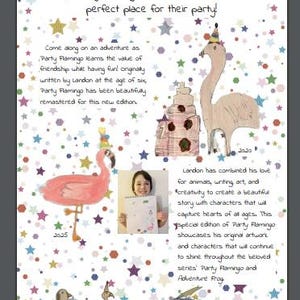 perfect place for their party!
Come along on an adventure as
Party Flamingo learns the value of
friendship while having fun! Originally
written by Landon at the age of six,
Party Flamingo has been beautifully
remastered for this new edition.
2020
Landon has combined his love
for animals, writing, art, and
creativity to create a beautiful
story with characters that will
capture hearts of all ages. This
special edition of "Party Flamingo"
showcases his original artwork
and characters that will continue
to shine throughout the beloved
series' Party Flamingo and
Adventure Frog.
2025